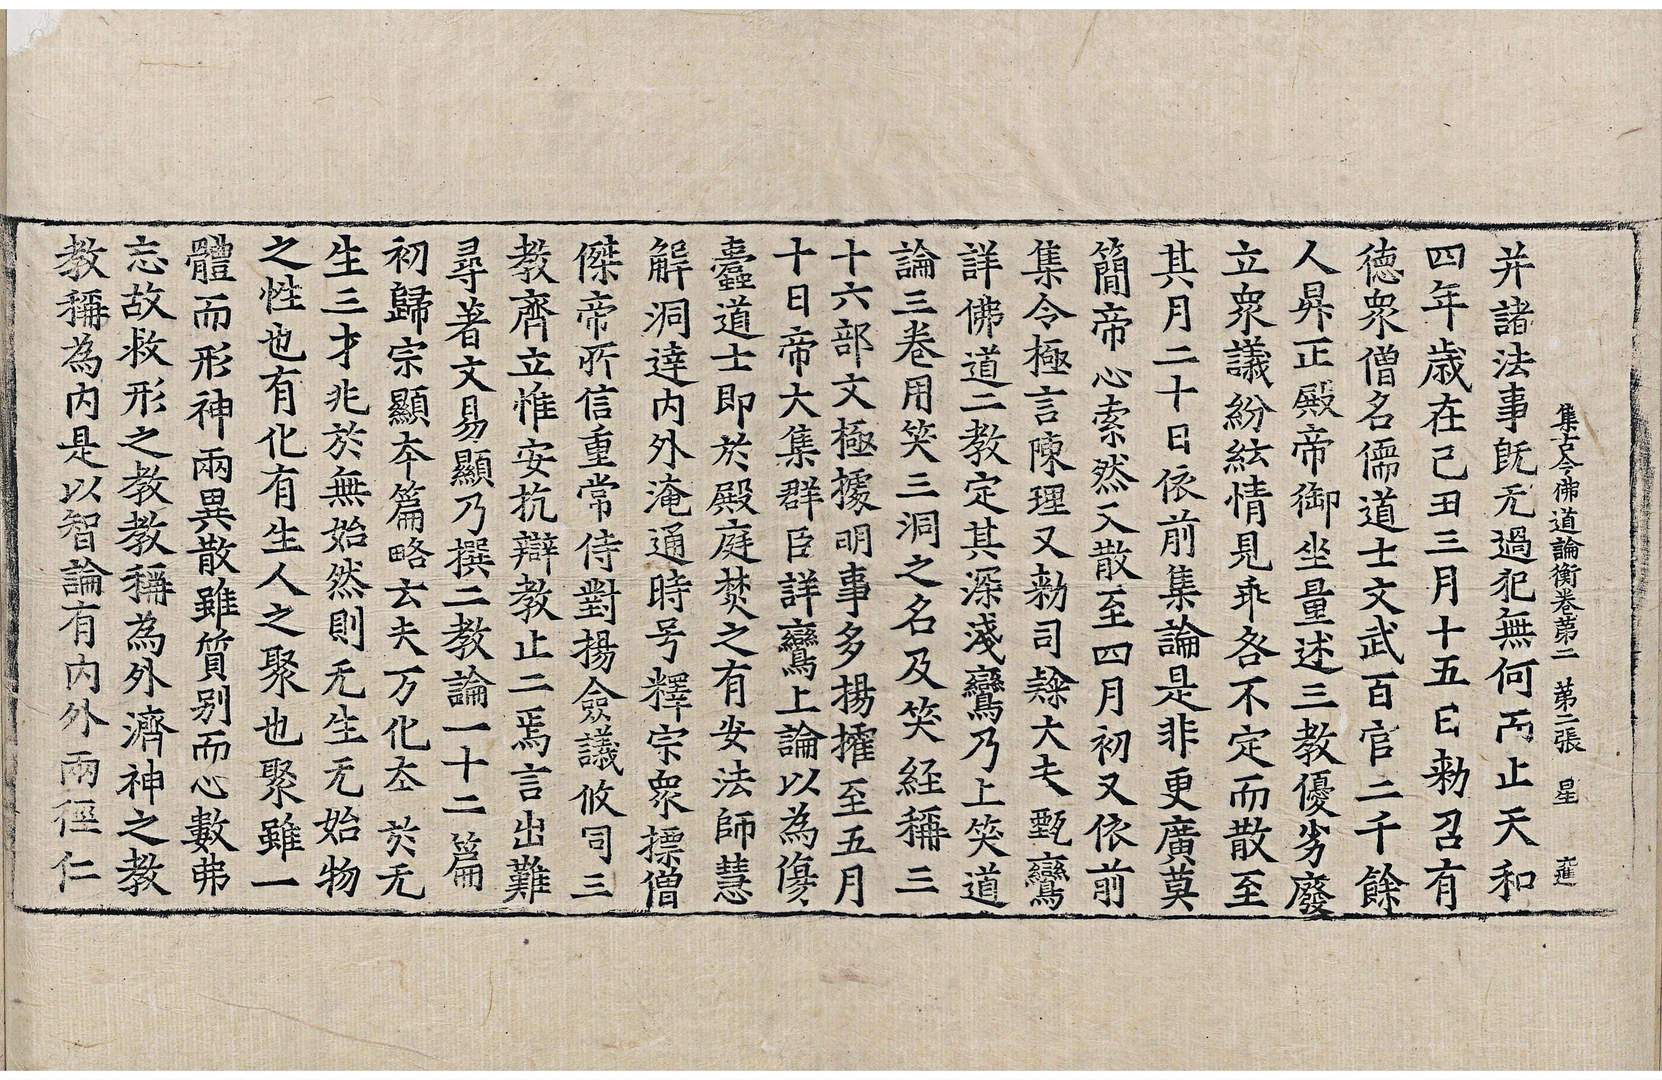 集古今佛道論衡卷第二 第二張 星
并諸法事旣无過犯無何而止天和
四年歳在己丑三月十五日勑召有
德衆僧名儒道士文武百官二千餘
人昇正殿帝御坐量述三教優劣廢
立衆議紛紜情見乖各不定而散至
其月二十日依前集論是非更廣莫
簡帝心索然又散至四月初又依前
集令極言陳理又勑司隸大夫甄鸞
詳佛道二教定其深淺鸞乃上笑道
論三卷用笑三洞之名及笑經稱三
十六部文極據明事多揚搉至五月
十日帝大集群臣詳鸞上論以為傷
蠹道士即於殿庭焚之有安法師慧
解洞達内外淹通時号釋宗衆摽僧
傑帝所信重常侍對揚僉議攸同三
教齊立惟安抗辯教止二焉言出難
尋著文易顯乃撰二教論一十二篇
初歸宗顯本篇略云夫万化本於无
生三才兆於無始然則无生无始物
之性也有化有生人之聚也聚雖一
體而形神兩異散雖質别而心數弗
忘故救形之教教稱為外濟神之教
教稱為内是以智論有内外兩徑仁